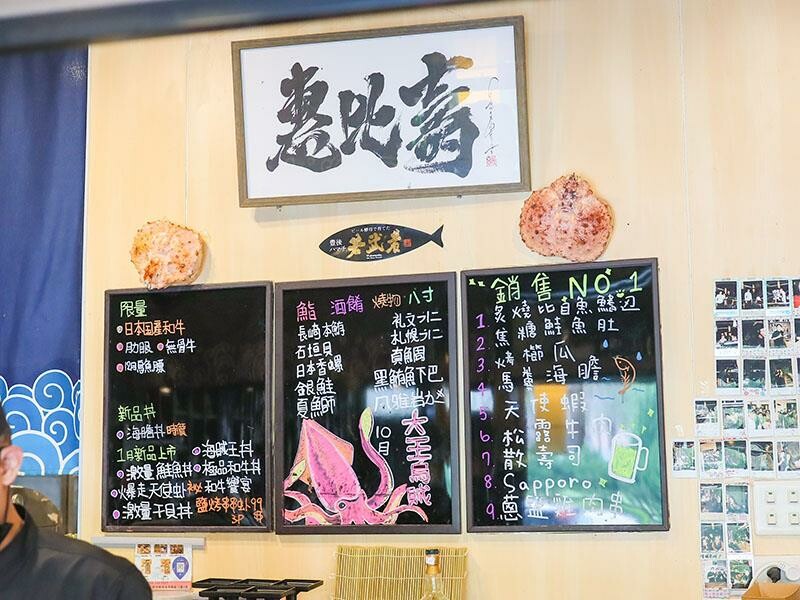 惠比壽
ビール酵母で育てた
豊後
ハマチ
若武者
限量
日本国産和牛
肋眼 無骨牛
新品丼
海膽丼 時價
1月新品上市
海賊王丼
激量鮭魚丼
極品和牛丼
爆走天使虾
和牛饗宴
激量干貝丼
鹽烤串串虾99
3P
鮨 酒餚 燒物 八寸
長崎本鮪
石垣貝
日本香螺
銀鮭
夏鰤
礼文うに
札幌うに
真鯛
黑鮪魚下巴
10月
大王烏賊
銷售NO.1
1. 炙燒比目魚鰭边
2. 焦糖鮭魚肚
3. 烤櫛瓜
4. 馬糞海膽
5. 天使蝦
6. 松露牛
7. 散壽司
8. Sapporo
9. 蔥鹽雞肉串